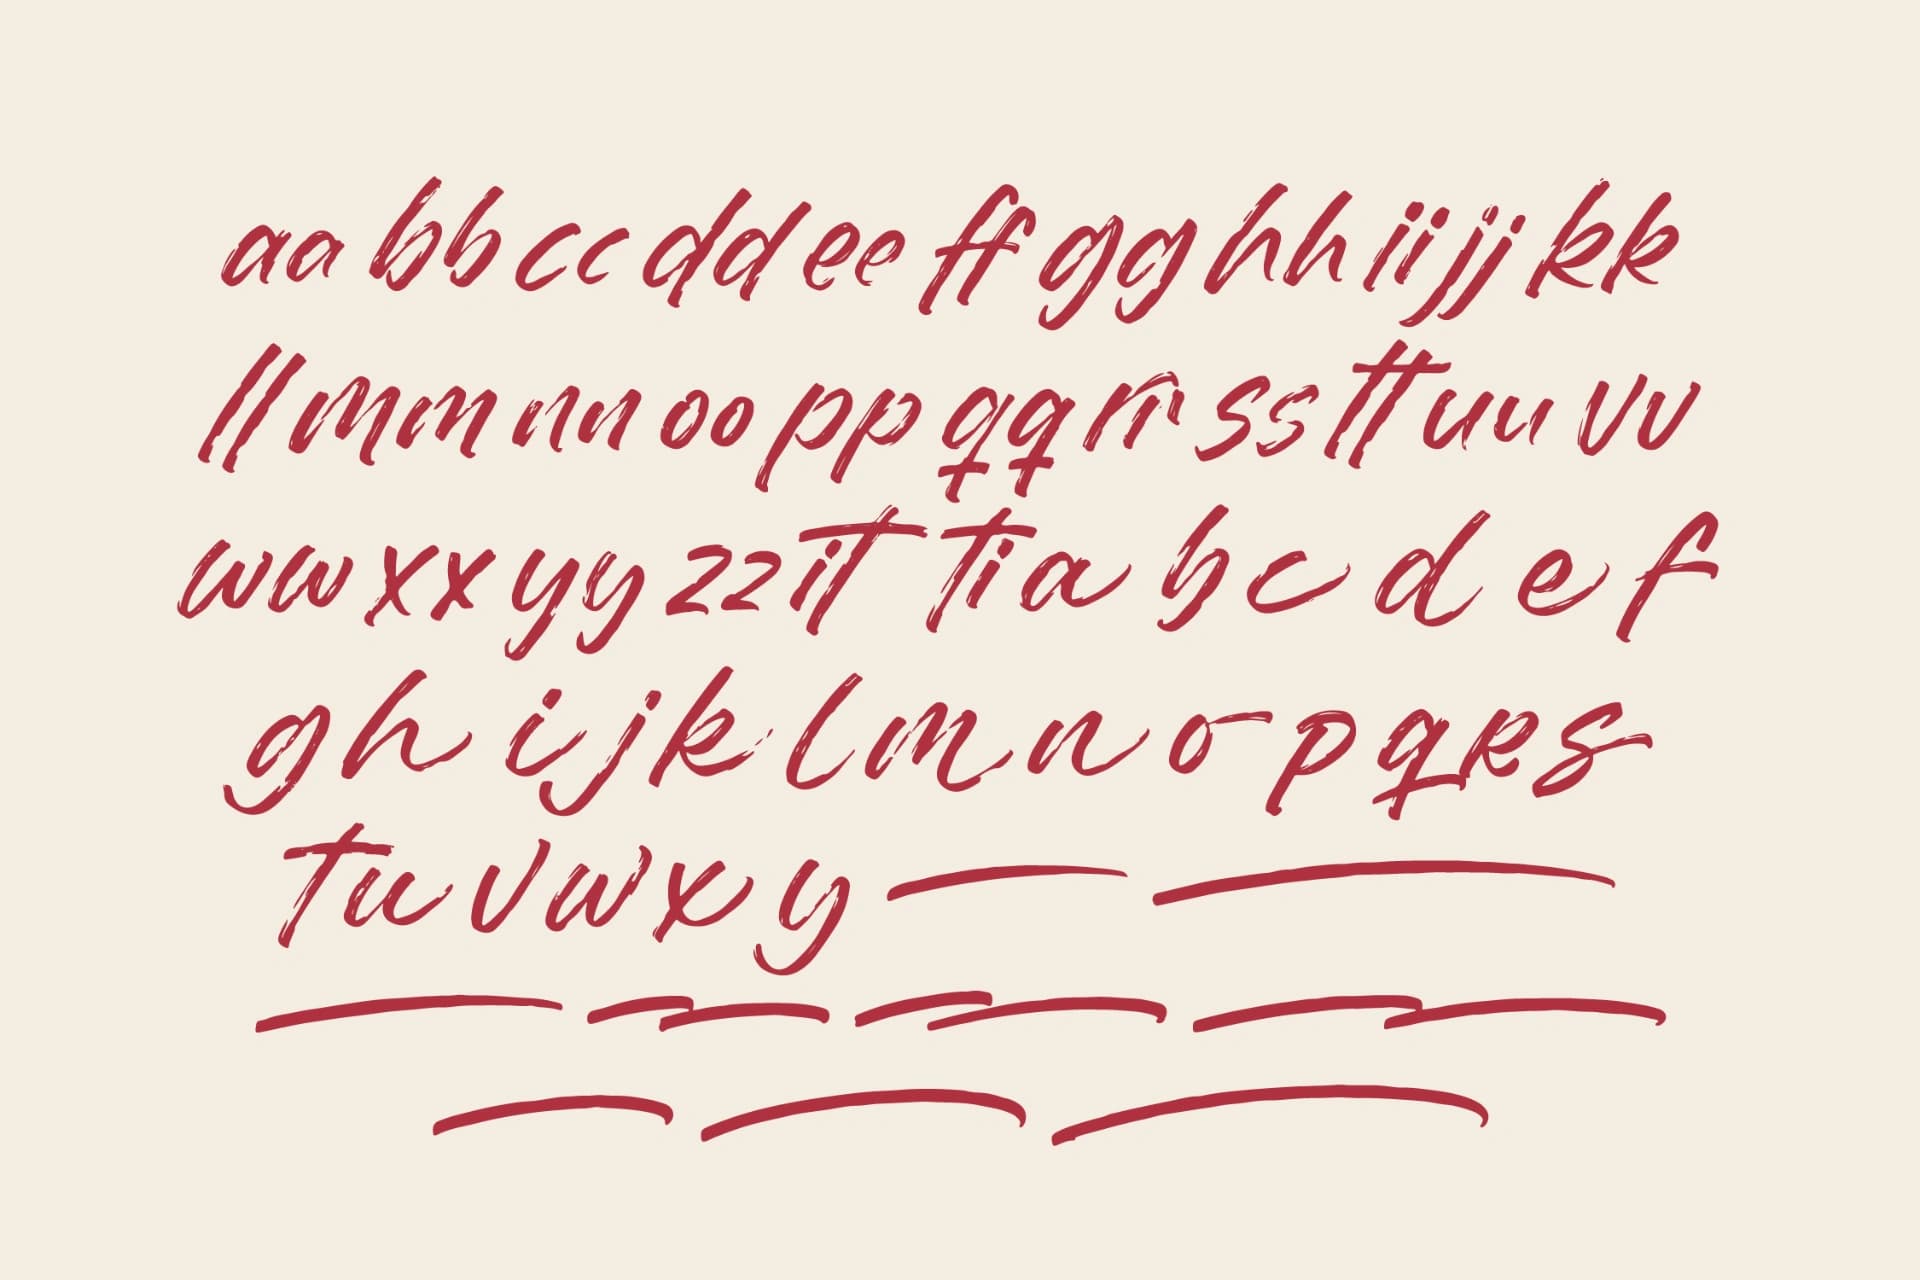 aa bb cc dd ee ff gg hh ii jj kk
ll mm nn oo pp qq rr ss tt uu vv
ww xx yy zz it ti a b c d e f
g h i j k l m n o p q r s
t u v w x y